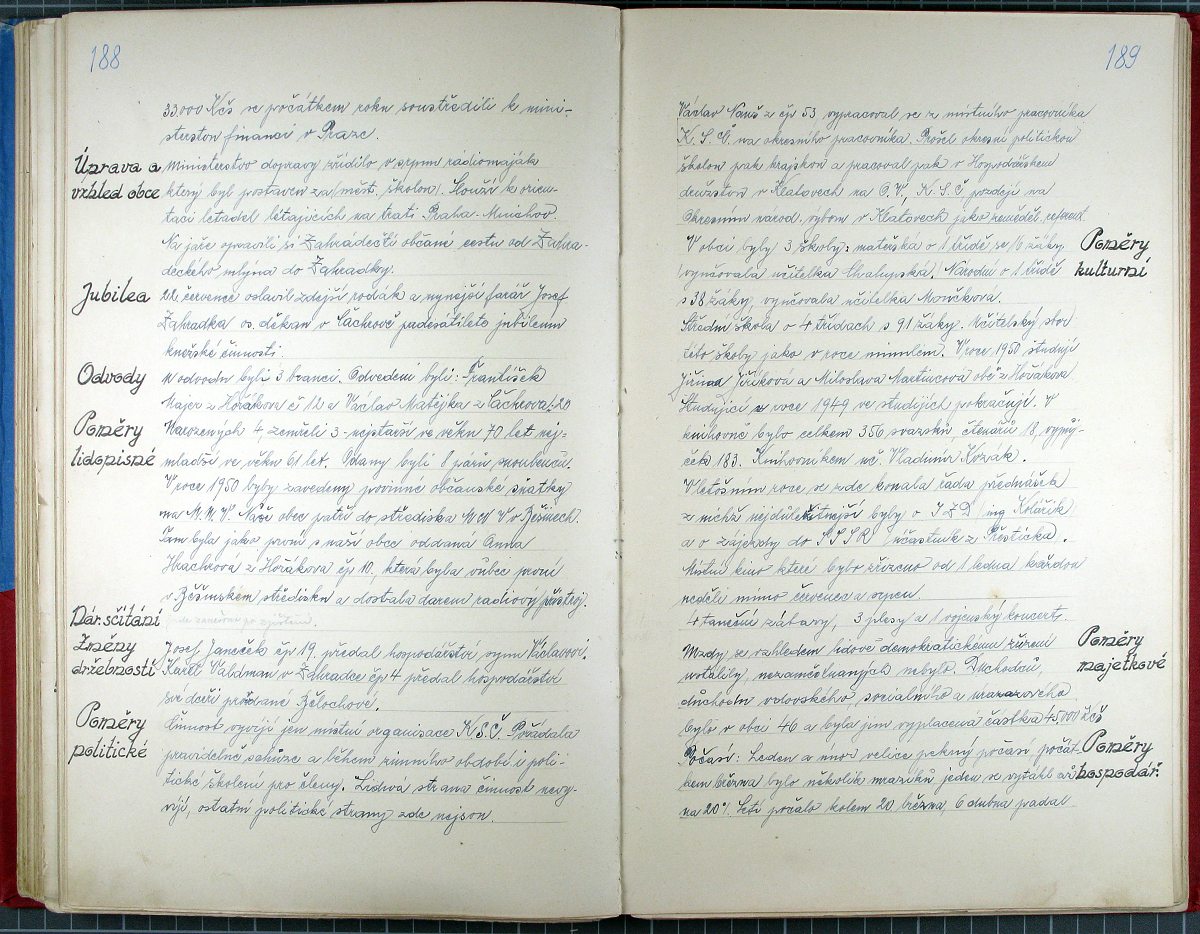 188
33.000 Kčs se počátkem roku soustředili k mini-
sterstvu financí v Praze.
Úprava a
vzhled obce
Ministerstvo dopravy zřídilo v srpnu rádiomaják
který byl postaven za měšť. školou. Slouží k orien-
taci letadel létajících na trati Praha - Mnichov.
Na jaře opravili si Zahrádečtí občané cestu od Zahra-
deckého mlýna do Zahrádky.
Jubilea
22. července oslavil zdejší rodák a nynější farář Josef
Zahradka os. děkan v Čáchrově padesátileté jubileum
kněžské činnosti.
Odvody
K odvodu byli 3 branci. Odvedeni byli: František
Majer z Hořákova č 12 a Václav Matějka z Čáchrova č. 20
Poměry
lidopisné
Narozených 4, zemřeli 3 - nejstarší ve věku 70 let nej-
mladší ve věku 61 let. Oddány byli 8 párů snoubenců.
V roce 1950 byby zavedeny povinné občanské sňatky
na M. N. V. Naše obec patří do střediska M N V v Běšinech.
Tam byla jako první s naší obce oddaná Anna
Hrachová z Hořákova čp 10, která byla vůbec první
v Běšinském středisku a dostala darem radiový přístroj.
Nár. sčítání
Změny
držebnosti
Josef Janeček čp 19, předal hospodářství synu Václavovi.
Karel Valdman v Zahradce čp 4 předal hospodářství
své dceři provdané Bělochové.
Poměry
politické
Činnost vyvíjí jen místní organisace K.S.Č. Pořádala
pravidelné schůze a během zimního období i poli-
tické školení pro členy. Lidová strana činnost nevy-
víjí, ostatní politické strany zde nejsou.
189
Václav Nauš z čp 53 vypracoval se z místního pracovníka
K. S. Č. na okresního pracovníka. Prošel okresní politickou
školou pak krajskou a pracoval pak v Hospodářském
družstvu v Klatovech na O.V. K.S.Č později na
Okresním národ. výboru v Klatovech jako zeměděl. referent
Poměry
kulturní
V obci byly 3 školy: mateřská o 1 třídě se 16 žáky
(vyučovala učitelka Chalupská). Národní o 1 třídě
s 38 žáky, vyučovala učitelka Moučková.
Střední škola o 4 třídách s 91 žáky. Učitelský sbor
této školy jako v roce minulém. V roce 1950 studují
Jiřina Jiříková a Miloslava Martincová obě z Hořákova
Studující z roce 1949 ve studijích pokračují. V
knihovně bylo celkem 356 svazků, čtenářů 18, výpůj-
ček 183. Knihovníkem uč. Vladimír Kozák.
V letošním roce se zde konala řada přednášek
z nichž nejdůležitnější byby o J Z D ing Kolářík
a o zájezdy do S S S R (účastník z Přešticka).
Místní kino které bylo zřízeno od 1 ledna každou
neděli mimo červenec a srpen
4 taneční zábavy, 3 plesy a 1 vojenský koncert.
Poměry
majetkové
Mzdy se vzhledem lidově demokratickému zřízení
ustálily, nezaměstnaných nebylo. Důchodců,
důchodu vdovského, sociálního a úrazového
bylo v obci 46 a byla jim vyplacená částka 45000 Kčs
Poměry
hospodář.
Počasí: Leden a únor velice pekný počasí, počát-
kem března bylo několik mrazíků jeden se vytáhl až
na 20°. Setí počalo kolem 20 března, 6 dubna padal